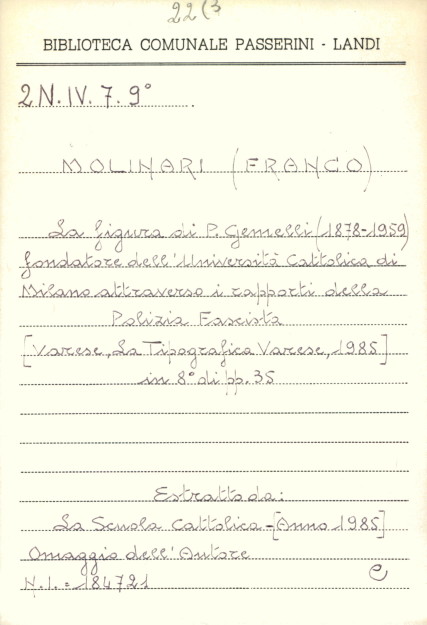 22(3
BIBLIOTECA COMUNALE PASSERINI - LANDI
2N.IV.7.9°
MOLINARI (FRANCO)
La figura di P. Gemelli (1878-1959)
fondatore dell'Università Cattolica di
Milano attraverso i rapporti della
Polizia Fascista
[Varese, La Tipografica Varese, 1985]
in 8° di pp. 35
Estratto da:
La Scuola Cattolica - [Anno 1985]
Omaggio dell'Autore
N.I.: 184721
e